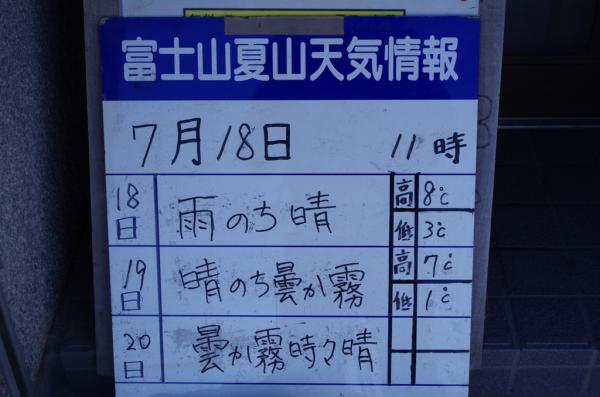 富士山夏山天気情報
7月18日 11時
18日 雨のち晴 高 8℃ 低 3℃
19日 晴のち曇か霧 高 7℃ 低 1℃
20日 曇か霧時々晴